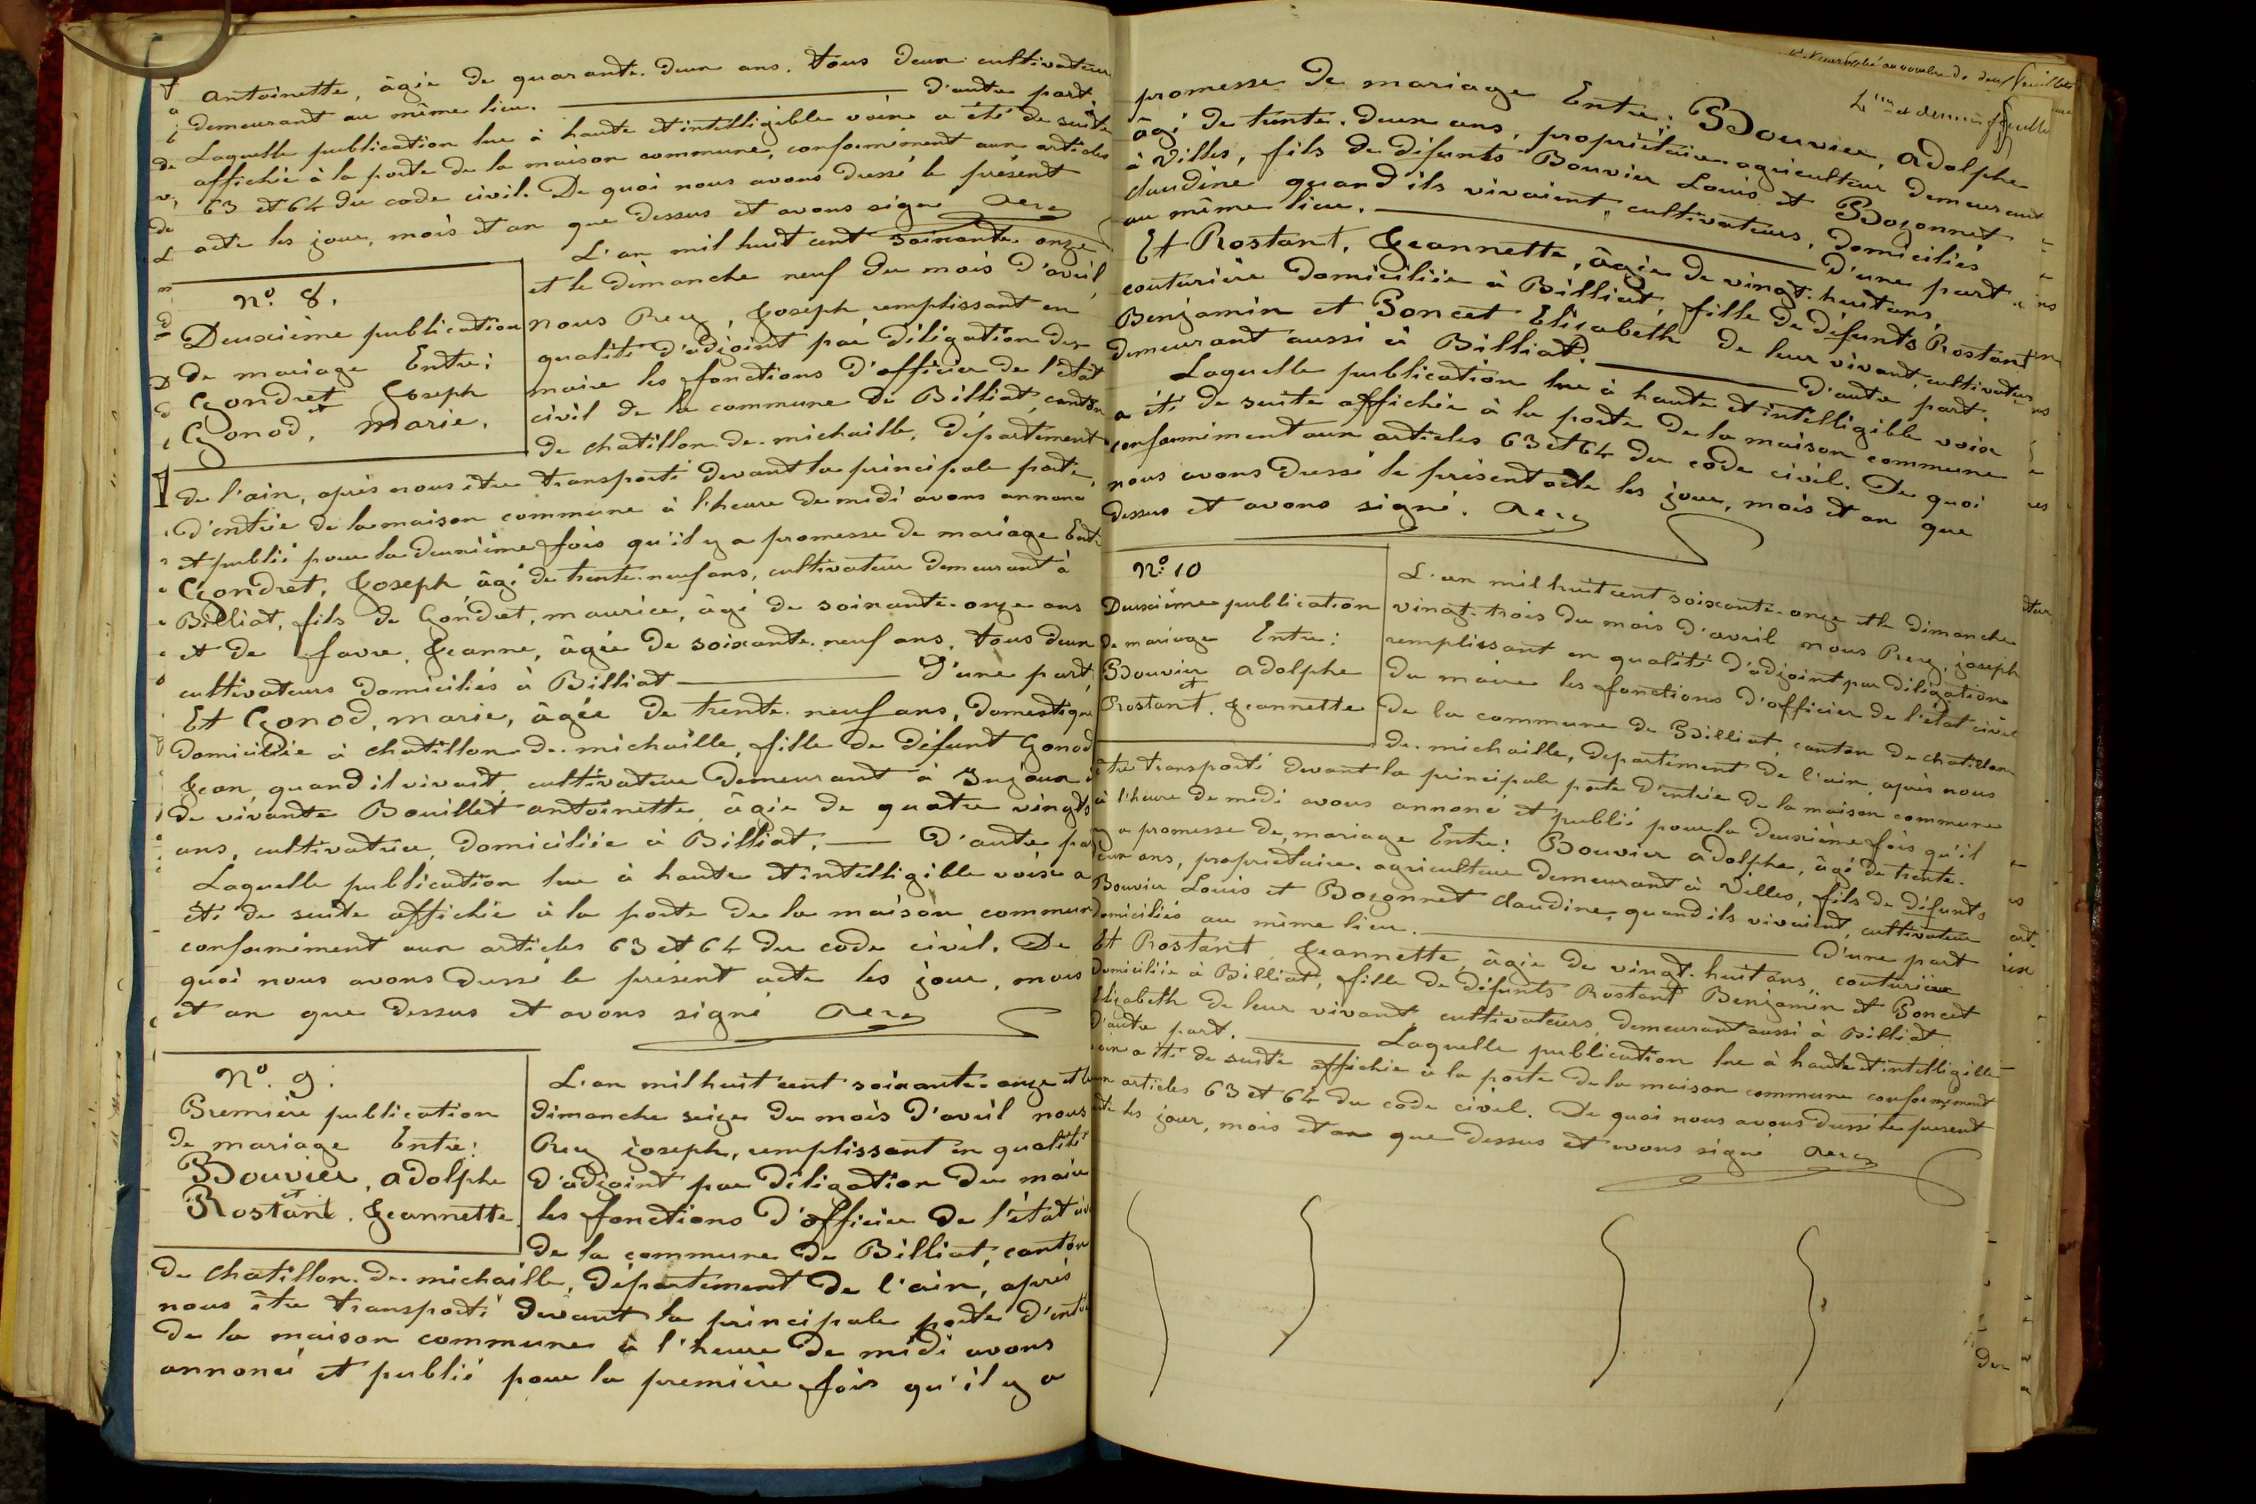 Antoinette, âgée de quarante-deux ans, tous deux cultivateurs
demeurant au même lieu. — d'autre part.
Laquelle publication lue à haute et intelligible voix a été de suite
affichée à la porte de la maison commune, conformément aux articles
63 et 64 du code civil. De quoi nous avons dressé le présent
acte les jour, mois et an que dessus et avons signé Rey
N° 8.
Deuxième publication
de mariage Entre:
Gondret Joseph
et
Gonod, Marie.
L'an mil huit cent soixante-onze
et le dimanche neuf du mois d'avril,
nous Rey, Joseph remplissant en
qualité d'adjoint par délégation du
maire les fonctions d'officier de l'état
civil de la commune de Billiat, canton
de chatillon-de-michaille, département
de l'ain, après nous être transporté devant la principale porte
d'entrée de la maison commune à l'heure de midi avons annoncé
et publié pour la deuxième fois qu'il y a promesse de mariage Entre
Gondret, Joseph, âgé de trente-neuf ans, cultivateur demeurant à
Billiat, fils de Gondret, maurice, âgé de soixante-onze ans
et de favre, Jeanne, âgée de soixante-neuf ans, tous deux
cultivateurs domiciliés à Billiat — D'une part,
Et Gonod, marie, âgée de trente-neuf ans, domestique
domiciliée à chatillon-de-michaille, fille de défunt Gonod
Jean, quand il vivait, cultivateur demeurant à Injoux
de vivante Bouillet antoinette, âgée de quatre vingts
ans, cultivatrice, domiciliée à Billiat. — D'autre part
Laquelle publication lue à haute et intelligible voix a
été de suite affichée à la porte de la maison commune
conformément aux articles 63 et 64 du code civil. De
quoi nous avons dressé le présent acte les jour, mois
et an que dessus et avons signé Rey
N° 9.
Première publication
de mariage Entre:
Bouvier, adolphe
et
Rostant. Jeannette.
L'an mil huit cent soixante-onze et le
dimanche seize du mois d'avril nous
Rey joseph, remplissant en qualité
d'adjoint par délégation du maire
les fonctions d'officier de l'état civil
de la commune de Billiat, canton
de chatillon-de-michaille, département de l'ain, après
nous être transporté devant la principale porte d'entrée
de la maison commune à l'heure de midi avons
annoncé et publié pour la première fois qu'il y a
au nombre de deux feuillets
et dernier feuillet
promesse de mariage Entre: Bouvier, adolphe
âgé de trente-deux ans, propriétaire-agriculteur demeurant
à Villes, fils de défunts Bouvier Louis et Bozonnet
claudine quand ils vivaient, cultivateurs, domiciliés
au même lieu. — D'une part.
Et Rostant, Jeannette, âgée de vingt-huit ans,
couturière domiciliée à Billiat, fille de défunts Rostant
Benjamin et Poncet Elisabeth de leur vivant, cultivateurs
demeurant aussi à Billiat. — D'autre part.
Laquelle publication lue à haute et intelligible voix
a été de suite affichée à la porte de la maison commune
conformément aux articles 63 et 64 du code civil. De quoi
nous avons dressé le présent acte les jour, mois et an que
dessus et avons signé. Rey
N° 10
Deuxième publication
de mariage Entre:
Bouvier adolphe
et
Rostant. Jeannette
L'an mil huit cent soixante-onze et le dimanche
vingt-trois du mois d'avril nous Rey, joseph
remplissant en qualité d'adjoint par délégation
du maire les fonctions d'officier de l'état civil
de la commune de Billiat, canton de chatillon
de-michaille, département de l'ain, après nous
être transporté devant la principale porte d'entrée de la maison commune
à l'heure de midi avons annoncé et publié pour la deuxième fois qu'il
y a promesse de mariage Entre: Bouvier adolphe, âgé de trente-
deux ans, propriétaire-agriculteur demeurant à Villes, fils de défunts
Bouvier Louis et Bozonnet claudine, quand ils vivaient, cultivateurs
domiciliés au même lieu. — D'une part
Et Rostant Jeannette, âgée de vingt-huit ans, couturière
domiciliée à Billiat, fille de défunts Rostant Benjamin et Poncet
Elizabeth de leur vivant cultivateurs, demeurant aussi à Billiat.
D'autre part. — Laquelle publication lue à haute et intelligible
voix a été de suite affichée à la porte de la maison commune conformément
aux articles 63 et 64 du code civil. De quoi nous avons dressé le présent
acte les jour, mois et an que dessus et avons signé Rey